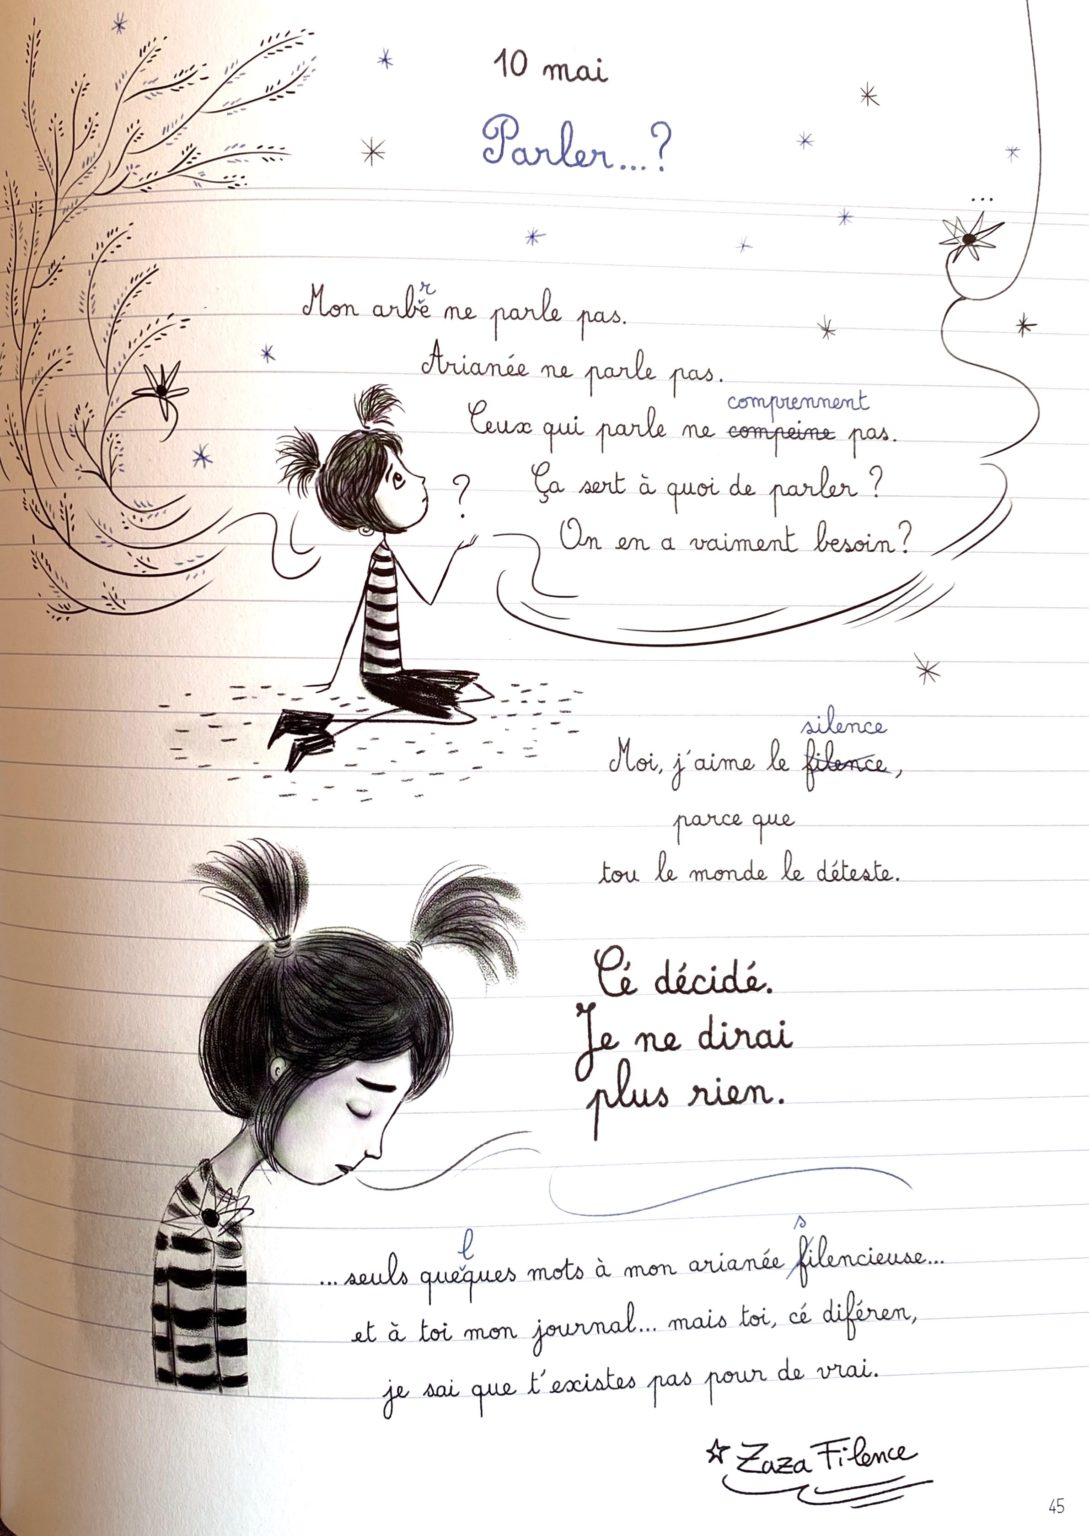 10 mai
Parler...?
...
Mon arbre ne parle pas.
Arianée ne parle pas.
comprennent
Ceux qui parle ne compeine pas.
?
Ça sert à quoi de parler ?
On en a vaiment besoin ?
silence
Moi, j'aime le filence,
parce que
tou le monde le déteste.
Cé décidé.
Je ne dirai
plus rien.
...seuls quelques mots à mon arianée silencieuse...
et à toi mon journal... mais toi, cé diféren,
je sai que t'existes pas pour de vrai.
Zaza Filence
45